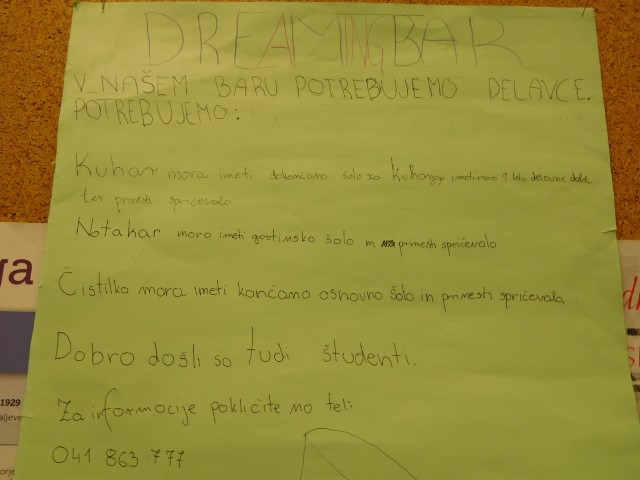 DREAMING BAR
V NAŠEM BARU POTREBUJEMO DELAVCE.
POTREBUJEMO:
Kuhar mora imeti dokončano šolo za kuhanje, imeti mora 1 leto delovne dobe
ter prinesti spričevalo.
Natakar mora imeti gostinsko šolo in prinesti spričevalo
Čistilka mora imeti končano osnovno šolo in prinesti spričevalo.
Dobro došli so tudi študenti.
Za informacije pokličite na tel:
041 863 777
ga
1929